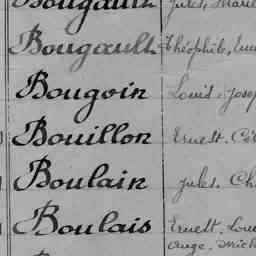 Bougault Jules, Marie
Bougault Théophile,
Bougoin Louis, Josep
Bouillon Ernest.
Boulain Jules. Ch
Boulais Ernest, Loui
Ange.